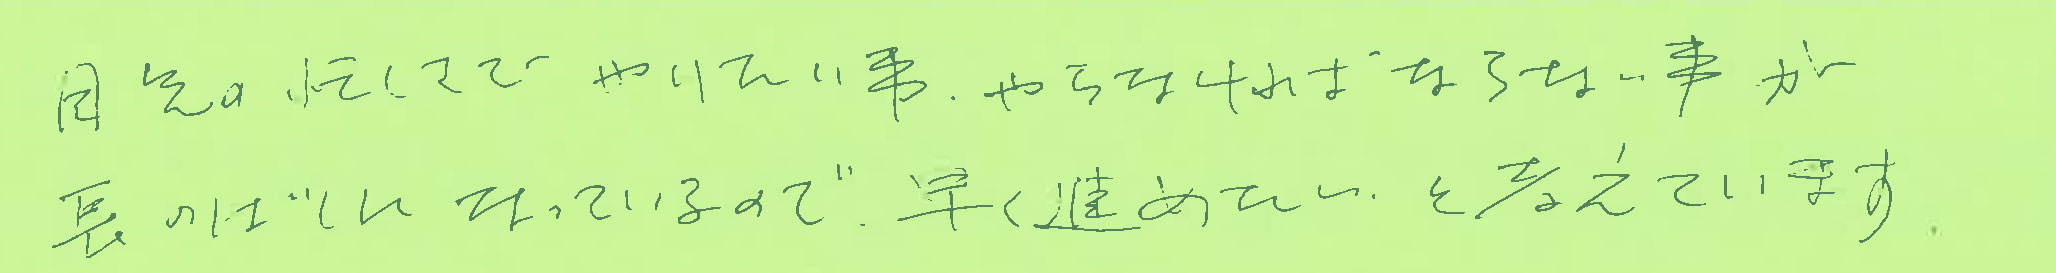 目先の忙しさでやりたい事、やらなければならない事が
長のばしになっているので、早く進めたい、と考えています。